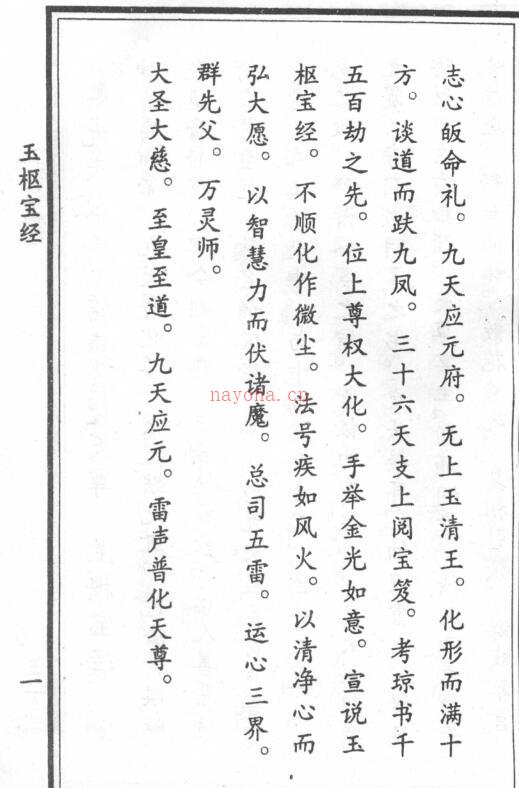 志心皈命礼。九天应元府。无上玉清王。化形而满十
方。谈道而趺九凤。三十六天支上阅宝笈。考琼书千
五百劫之先。位上尊权大化。手举金光如意。宣说玉
枢宝经。不顺化作微尘。法号疾如风火。以清净心而
弘大愿。以智慧力而伏诸魔。总司五雷。运心三界。
群先父。万灵师。
大圣大慈。至皇至道。九天应元。雷声普化天尊。
玉枢宝经
一
nayona.cn